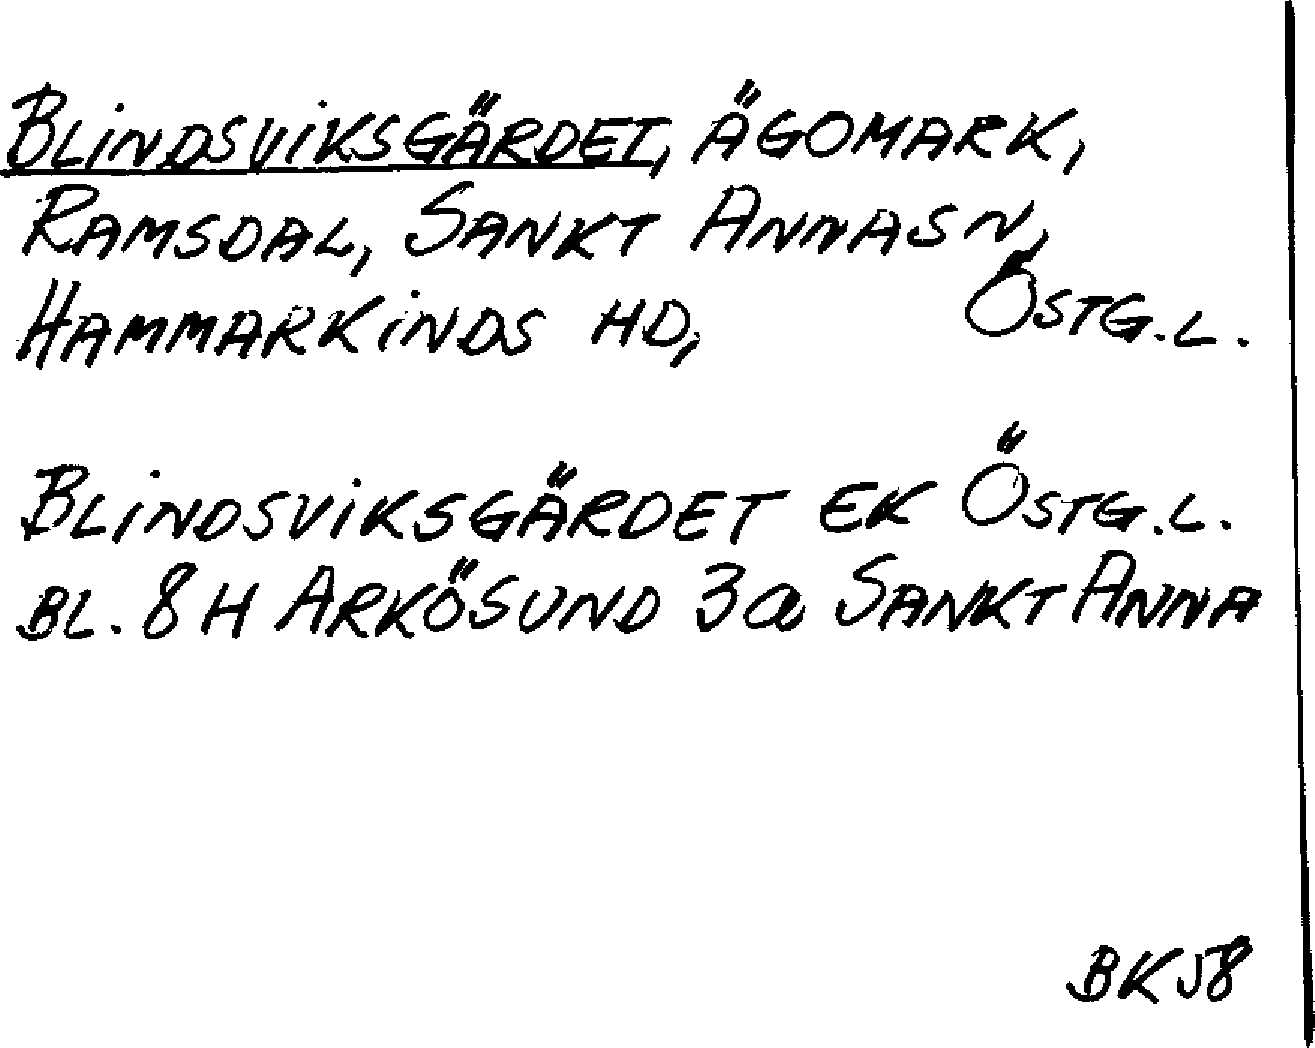 BLINDSVIKSGÄRDET, ÄGOMARK,
RAMSDAL, SANKT ANNAS N,
HAMMARKINDS HD, ÖSTG.L.
BLINDSVIKSGÄRDET EK ÖSTG.L.
BL. 8H ARKÖSUND 3a SANKT ANNA
BK58